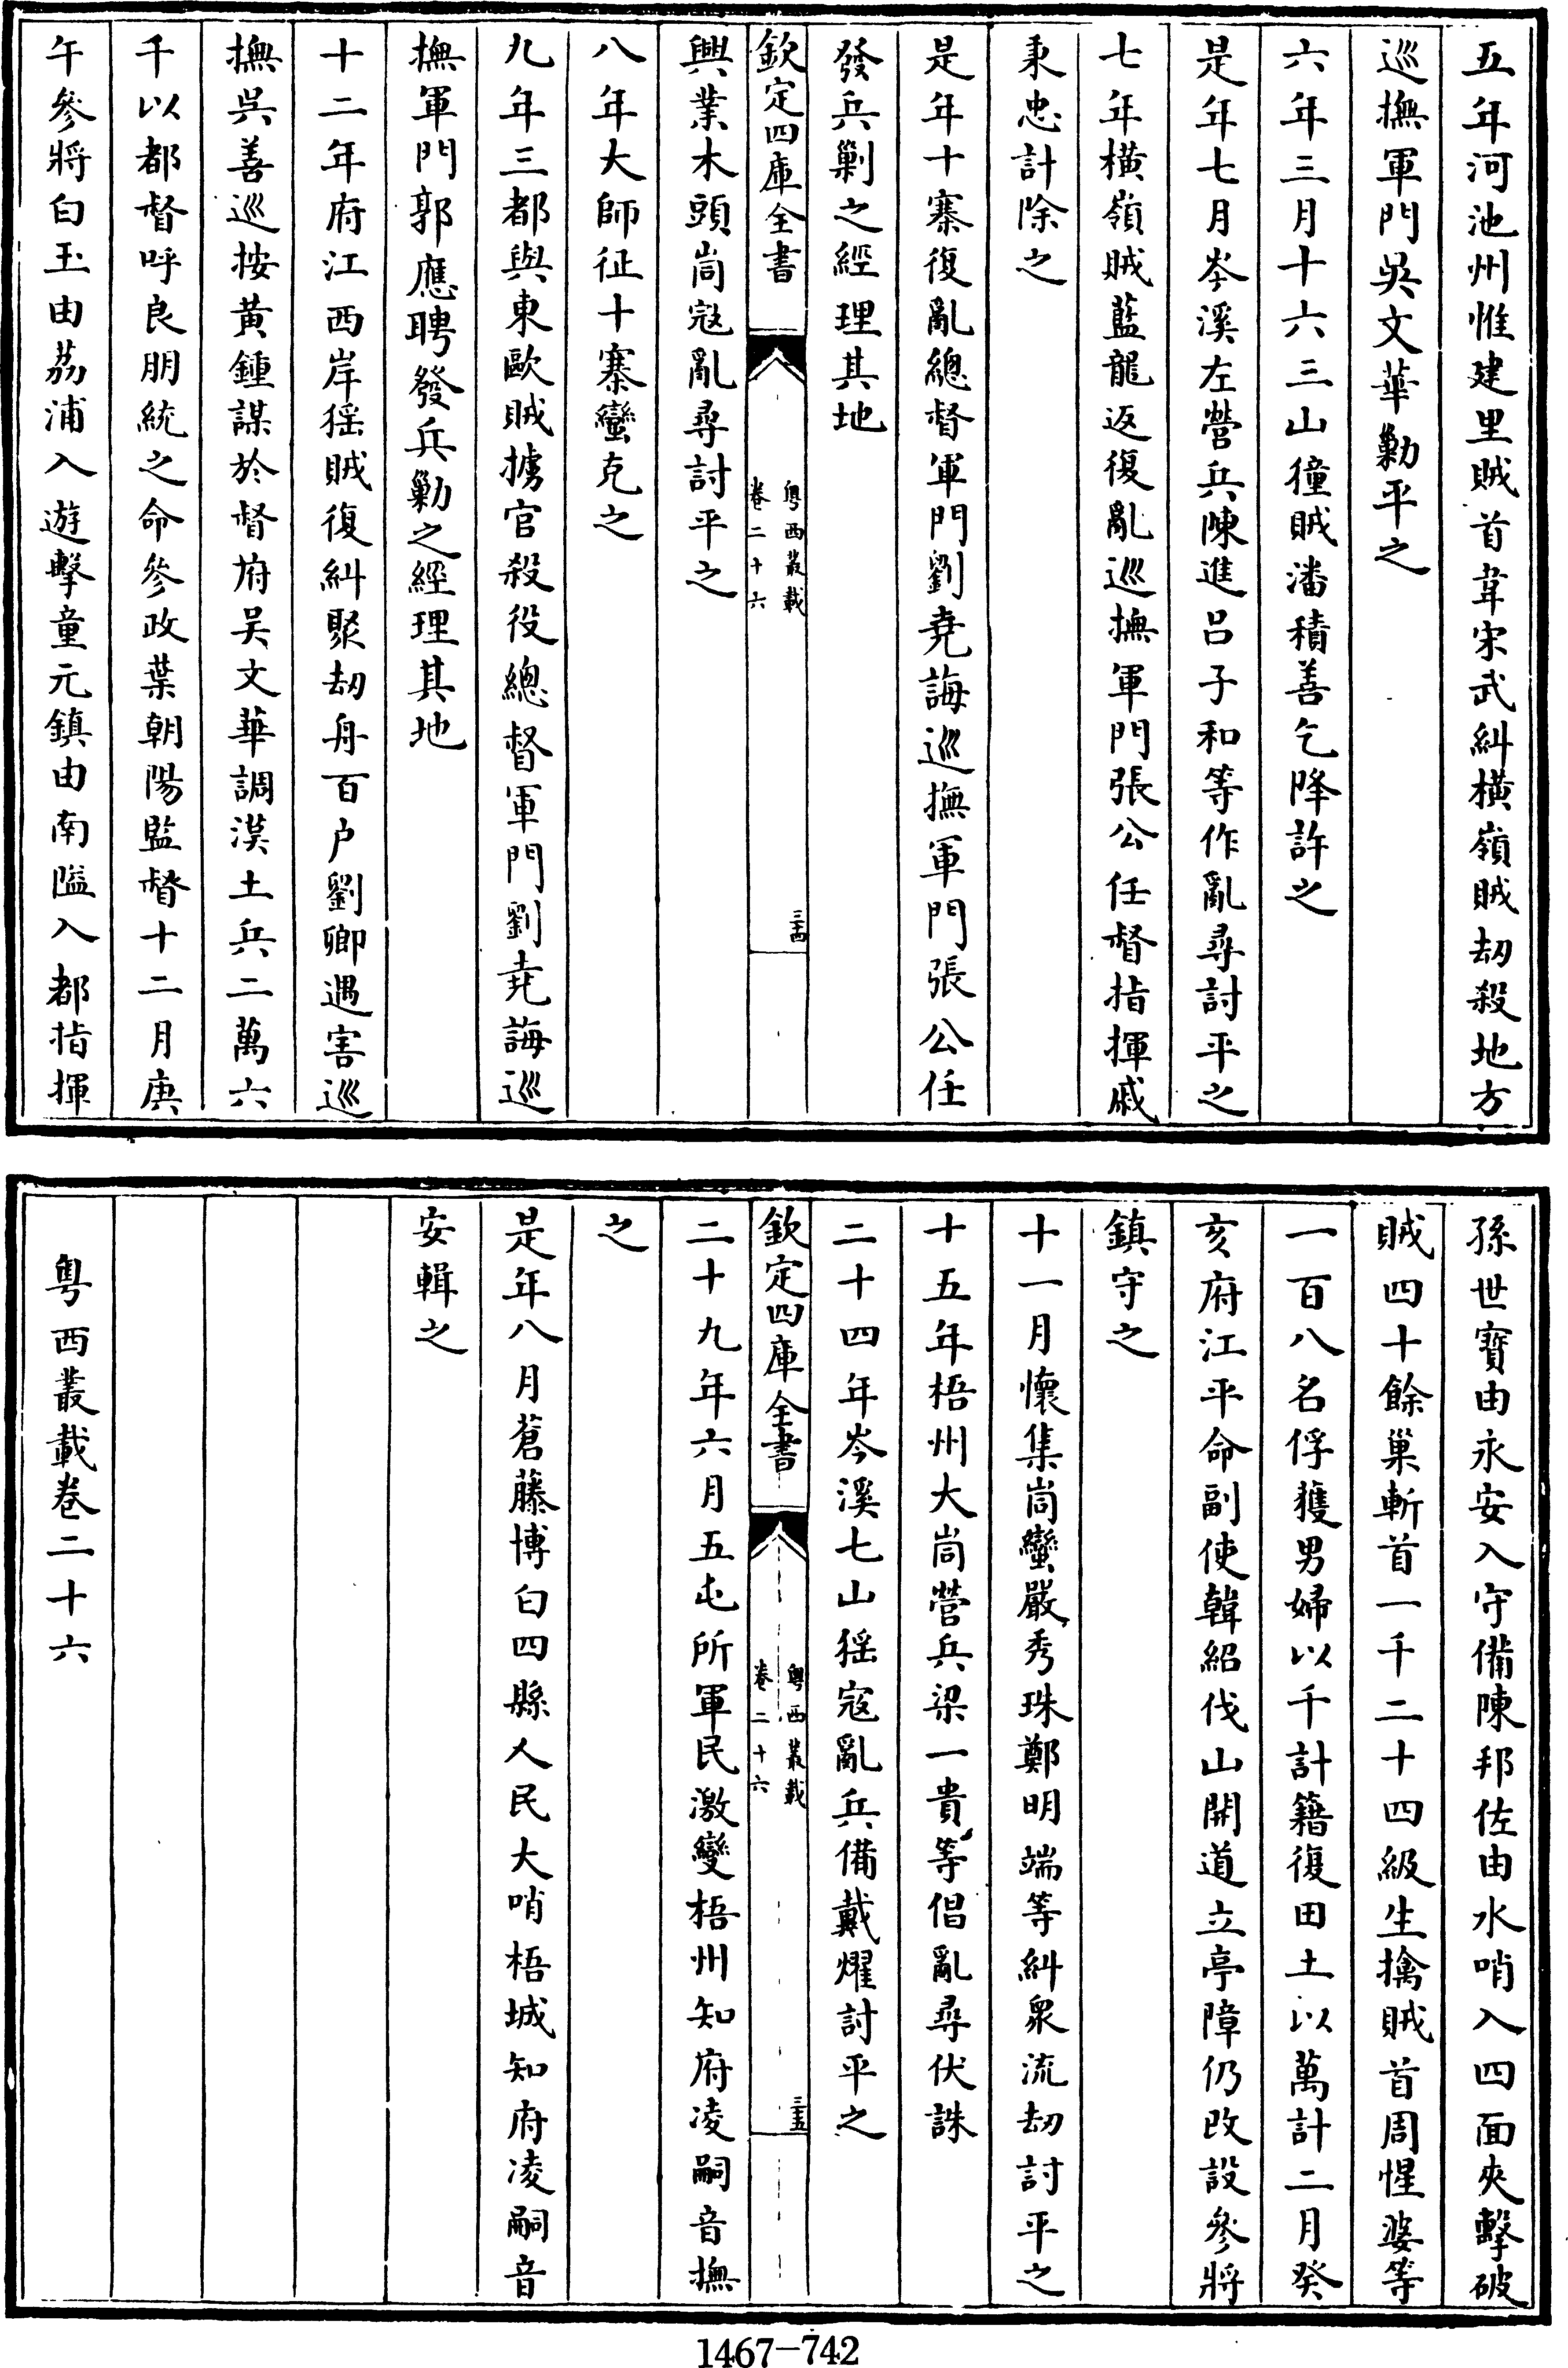 五年河池州惟建里賊首韋宋武糾橫嶺賊刧殺地方
巡撫軍門吳文華勦平之
六年三月十六三山獞賊潘積善乞降許之
是年七月岑溪左營兵陳進吕子和等作亂尋討平之
七年橫嶺賊藍龍返復亂巡撫軍門張公任督指揮戚
秉忠計除之
是年十寨復亂總督軍門劉堯誨巡撫軍門張公任
發兵剿之經理其地
欽定四庫全書
粵西叢載
卷二十六
三十四
興業木頭峝冦亂尋討平之
八年大師征十寨蠻克之
九年三都與東歐賊擄官殺役總督軍門劉堯誨巡
撫軍門郭應聘發兵勦之經理其地
十二年府江西岸猺賊復糾聚刧舟百户劉卿遇害巡
撫吳善巡按黃鍾謀於督府吴文華調漢土兵二萬六
千以都督呼良朋統之命參政葉朝陽監督十二月庚
午參將白玉由荔浦入遊擊童元鎮由南隘入都指揮
孫世寶由永安入守備陳邦佐由水哨入四面夾擊破
賊四十餘巢斬首一千二十四級生擒賊首周惺婆等
一百八名俘獲男婦以千計籍復田土以萬計二月癸
亥府江平命副使韓紹伐山開道立亭障仍改設參將
鎮守之
十一月懷集峝蠻嚴秀珠鄭明端等糾衆流刧討平之
十五年梧州大峝營兵梁一貴等倡亂尋伏誅
二十四年岑溪七山猺寇亂兵備戴燿討平之
欽定四庫全書
粵西叢載
卷二十六
三十五
二十九年六月五屯所軍民激變梧州知府凌嗣音撫
之
是年八月蒼藤博白四縣人民大哨梧城知府凌嗣音
安輯之
粵西叢載卷二十六
1467-742